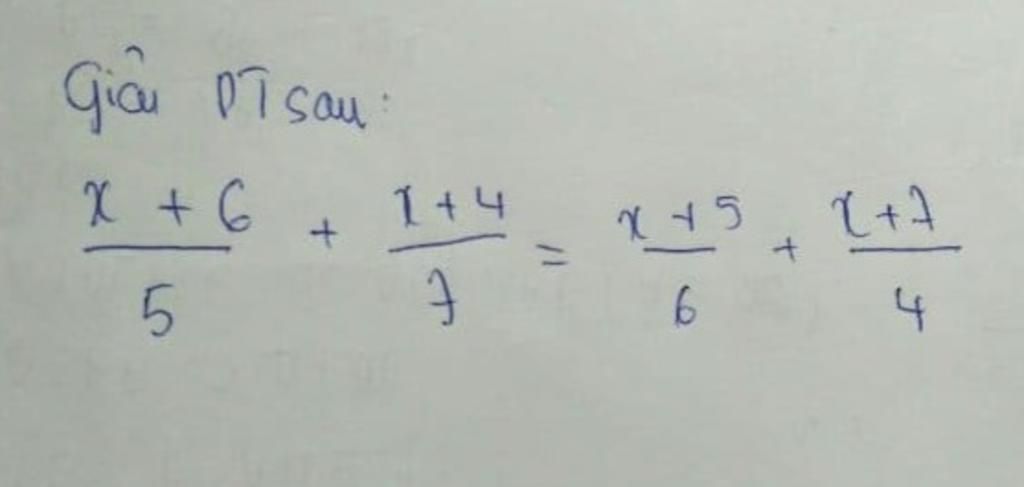 Giải PT sau:
x + 6 / 5 + x + 4 / 7 = x + 5 / 6 + x + 7 / 4